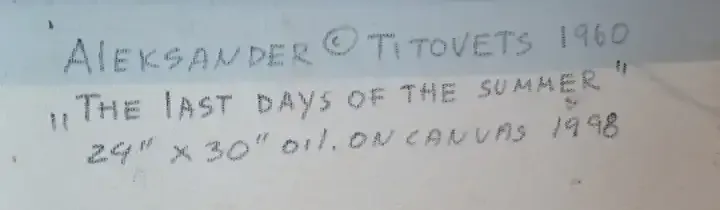 ALEKSANDER © TITOVETS 1960
"THE LAST DAYS OF THE SUMMER"
24" x 30" oil. ON CANVAS 1998